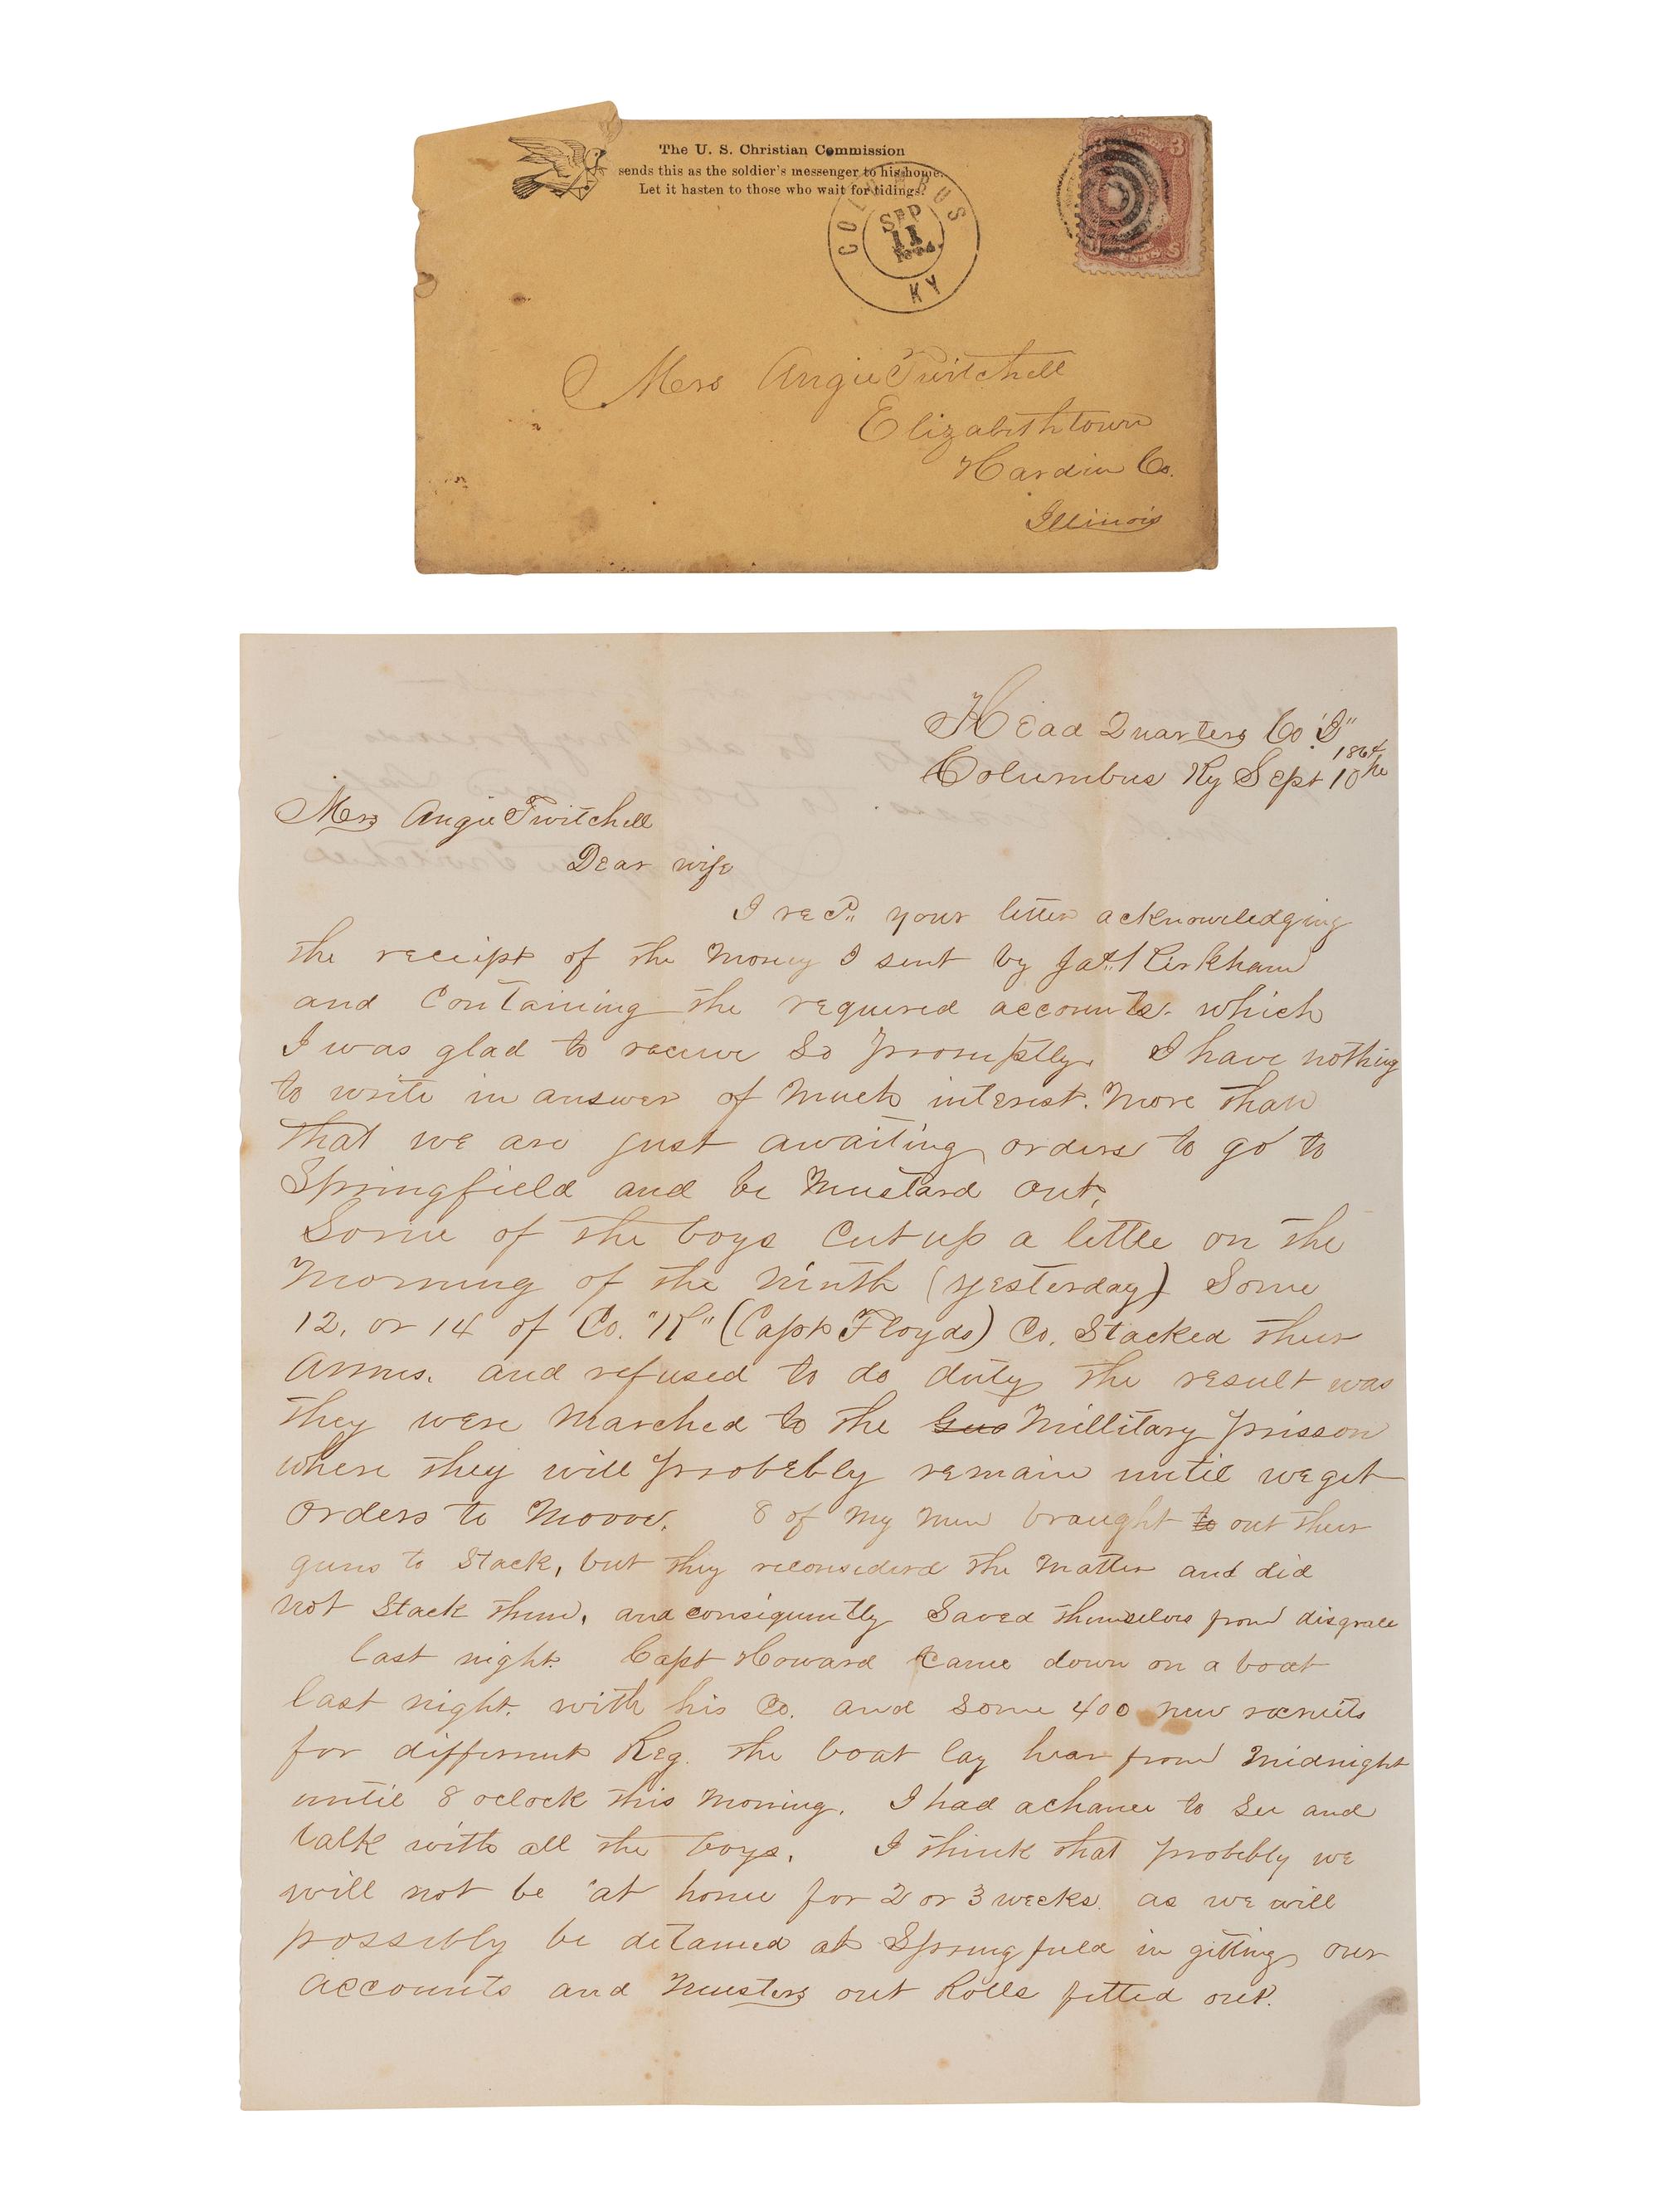 The U. S. Christian Commission
sends this as the soldier's messenger to his home.
Let it hasten to those who wait for tidings.
COLUMBUS
SEP
11
KY
3
Mrs Angie Twitchell
Elizabethtown
Hardin Co.
Illinois
Head Quarters Co. "D"
1864
Columbus Ky Sept 10th
Mrs Angie Twitchell
Dear wife
I recd. your letter acknowledging
the receipt of the Money I sent by Jas. Kirkham
and Containing the required accounts. which
I was glad to receive so promptly. I have nothing
to write in answer of Much interest. More than
that we are just awaiting orders to go to
Springfield and be Mustard out.
Some of the boys Cut up a little on the
Morning of the Ninth (yesterday) Some
12. or 14 of Co. "K" (Capt Floyds) Co. Stacked their
Arms. and refused to do duty the result was
they were Marched to the Millitary prisson
where they will probebly remain until we get
orders to Moove. 8 of My Men braught to out their
guns to Stack, but they reconsiderd the Matter and did
not Stack them, and consiquently Saved themselves from disgrace
last night. Capt Howard Came down on a boat
last night. with his Co. and some 400 new recruits
for different Reg. the boat lay hear from Midnight
until 8 oclock this Morning. I had a chance to See and
talk with all the boys. I think that probebly we
will not be at home for 2 or 3 weeks. as we will
possibly be detained at Springfield in gitting our
accounts and Musters out Rolls fitted out.